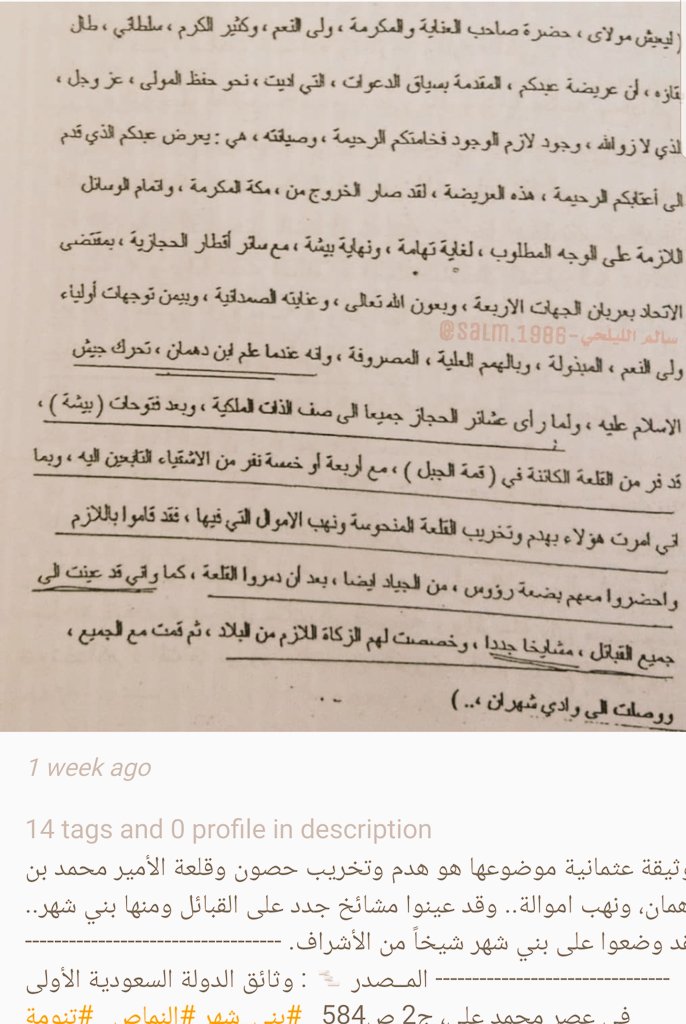 ( ليعيش مولاى ، حضرة صاحب العناية والمكرمة ، ولى النعم ، وكثير الكرم ، سلطاني ، طال
بقازه ، أن عريضة عبدكم ، المقدمة بسياق الدعوات ، التي اديت ، نحو حفظ المولى ، عز وجل ،
الذي لا زوالله ، وجود لازم الوجود فخامتكم الرحيمة ، وصيانته ، هي : يعرض عبدكم الذي قدم
الى أعتابكم الرحيمة ، هذه العريضة ، لقد صار الخروج من ، مكة المكرمة ، واتمام الوسائل
اللازمة على الوجه المطلوب ، لغاية تهامة ، ونهاية بيشة ، مع سائر أقطار الحجازية ، بمقتضى
الاتحاد بعربان الجهات الاربعة ، وبعون الله تعالى ، وعنايته الصمدانية ، وبيمن توجهات أولياء
@salm.1986-سالم الليلحي
ولى النعم ، المبذولة ، وبالهمم العلية ، المصروفة ، وانه عندما علم ابن دهمان ، تحرك جيش
الاسلام عليه ، ولما رأى عشائر الحجاز جميعا الى صف الذات الملكية ، وبعد فتوحات ( بيشة ) ،
قد فر من القلعة الكائنة في ( قمة الجبل ) ، مع أربعة أو خمسة نفر من الاشقياء التابعين اليه ، وبما
اني امرت هؤلاء بهدم وتخريب القلعة المنحوسة ونهب الاموال التي فيها ، فقد قاموا باللازم
واحضروا معهم بضعة رؤوس ، من الجياد ايضا ، بعد أن دمروا القلعة ، كما واني قد عينت الى
جميع القبائل ، مشايخا جددا ، وخصصت لهم الزكاة اللازم من البلاد ، ثم قمت مع الجميع ،
ووصلت الي وادي شهران ،.. )
1 week ago
14 tags and 0 profile in description
وثيقة عثمانية موضوعها هو هدم وتخريب حصون وقلعة الأمير محمد بن
همان، ونهب اموالة.. وقد عينوا مشائخ جدد على القبائل ومنها بني شهر..
قد وضعوا على بني شهر شيخاً من الأشراف. --------------------------------
----------------------------- المـصدر : وثائق الدولة السعودية الأولى
في عصر محمد علي، ج2 ص584 #بني_شهر #النماص_ #تنومة